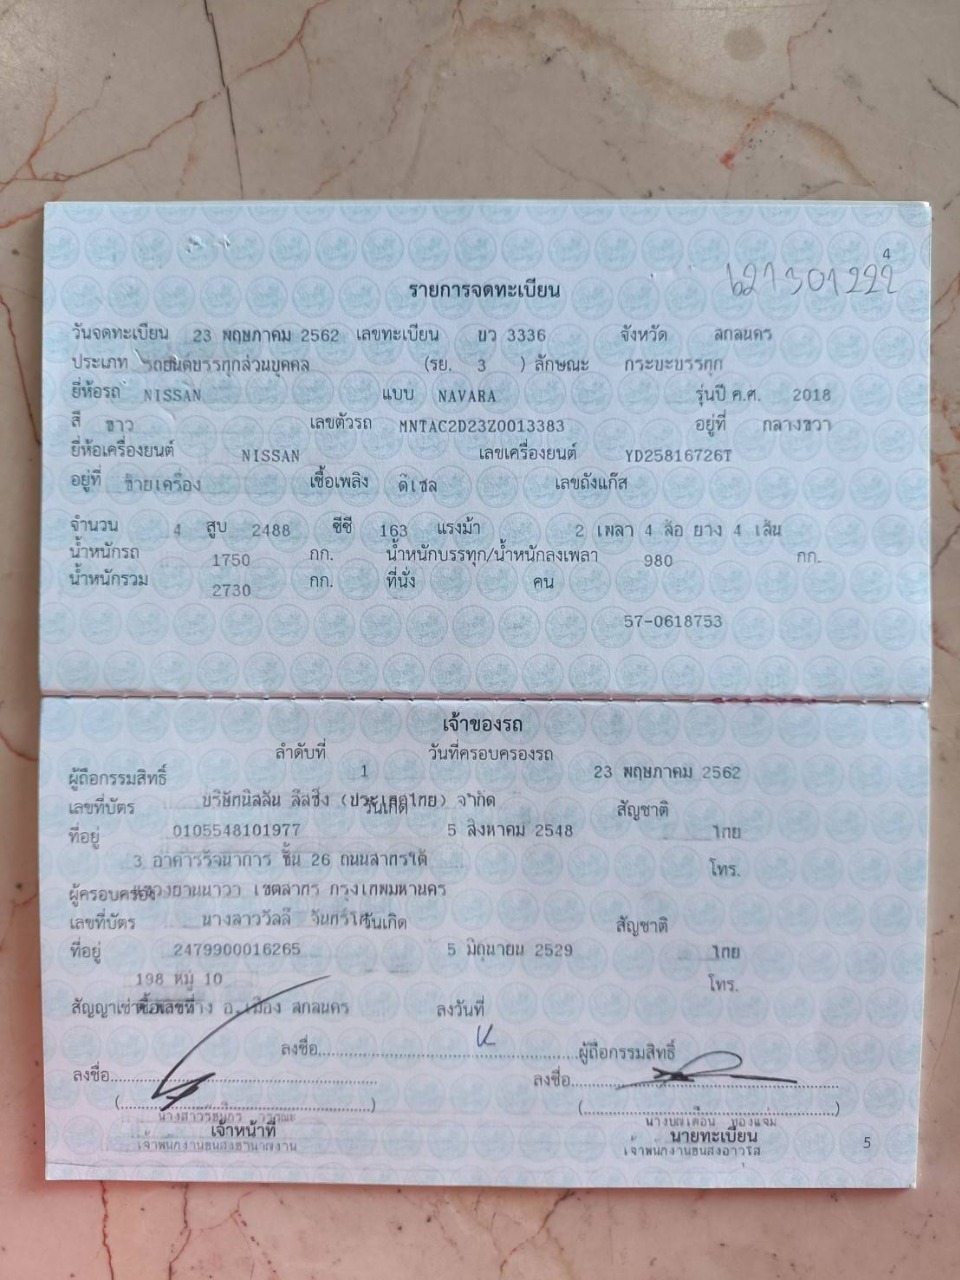 4
621301222
รายการจดทะเบียน
วันจดทะเบียน 23 พฤษภาคม 2562 เลขทะเบียน บว 3336 จังหวัด สกลนคร
ประเภท รถยนต์บรรทุกส่วนบุคคล (รย. 3 ) ลักษณะ กระบะบรรทุก
ยี่ห้อรถ NISSAN แบบ NAVARA รุ่นปี ค.ศ. 2018
สี ขาว เลขตัวรถ MNTAC2D23Z0013383 อยู่ที่ กลางขวา
ยี่ห้อเครื่องยนต์ NISSAN เลขเครื่องยนต์ YD25816726T
อยู่ที่ ซ้ายเครื่อง เชื้อเพลิง ดีเซล เลขถังแก๊ส
จำนวน 4 สูบ 2488 ซีซี 163 แรงม้า 2 เพลา 4 ล้อ ยาง 4 เส้น
น้ำหนักรถ 1750 กก. น้ำหนักบรรทุก/น้ำหนักลงเพลา 980 กก.
น้ำหนักรวม 2730 กก. ที่นั่ง คน
57-0618753
เจ้าของรถ
ลำดับที่ 1 วันที่ครอบครองรถ 23 พฤษภาคม 2562
ผู้ถือกรรมสิทธิ์ บริษัทนิสสัน ลีสซิ่ง (ประเทศไทย) จำกัด
เลขที่บัตร 0105548101977 วันเกิด 5 สิงหาคม 2548 สัญชาติ ไทย
ที่อยู่ 3 อาคารรัจนาการ ชั้น 26 ถนนสาทรใต้ โทร.
แขวงยานนาวา เขตสาทร กรุงเทพมหานคร
ผู้ครอบครอง นางสาววัลลี
เลขที่บัตร 2479900016265 วันเกิด 5 มิถุนายน 2529 สัญชาติ ไทย
ที่อยู่ 198 หมู่ 10 โทร.
อ.เมือง สกลนคร
สัญญาเช่าซื้อเลขที่ ลงวันที่
ลงชื่อ ผู้ถือกรรมสิทธิ์
ลงชื่อ ลงชื่อ
( ) ( )
นางสาว นางบุญเตือน ทองแจ่ม
เจ้าหน้าที่ นายทะเบียน
เจ้าพนักงานขนส่งชำนาญงาน เจ้าพนักงานขนส่งอาวุโส
5